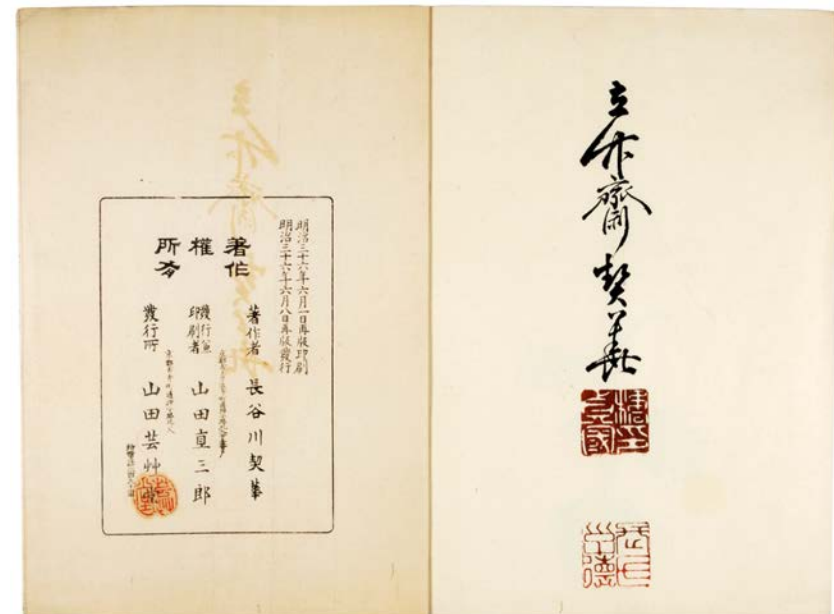 立作齋契華
明治三十六年六月一日再版印刷
明治三十六年六月八日再版發行
著作
權
所有
著作者 長谷川契華
發行兼印刷者 山田直三郎
發行所 山田芸艸堂